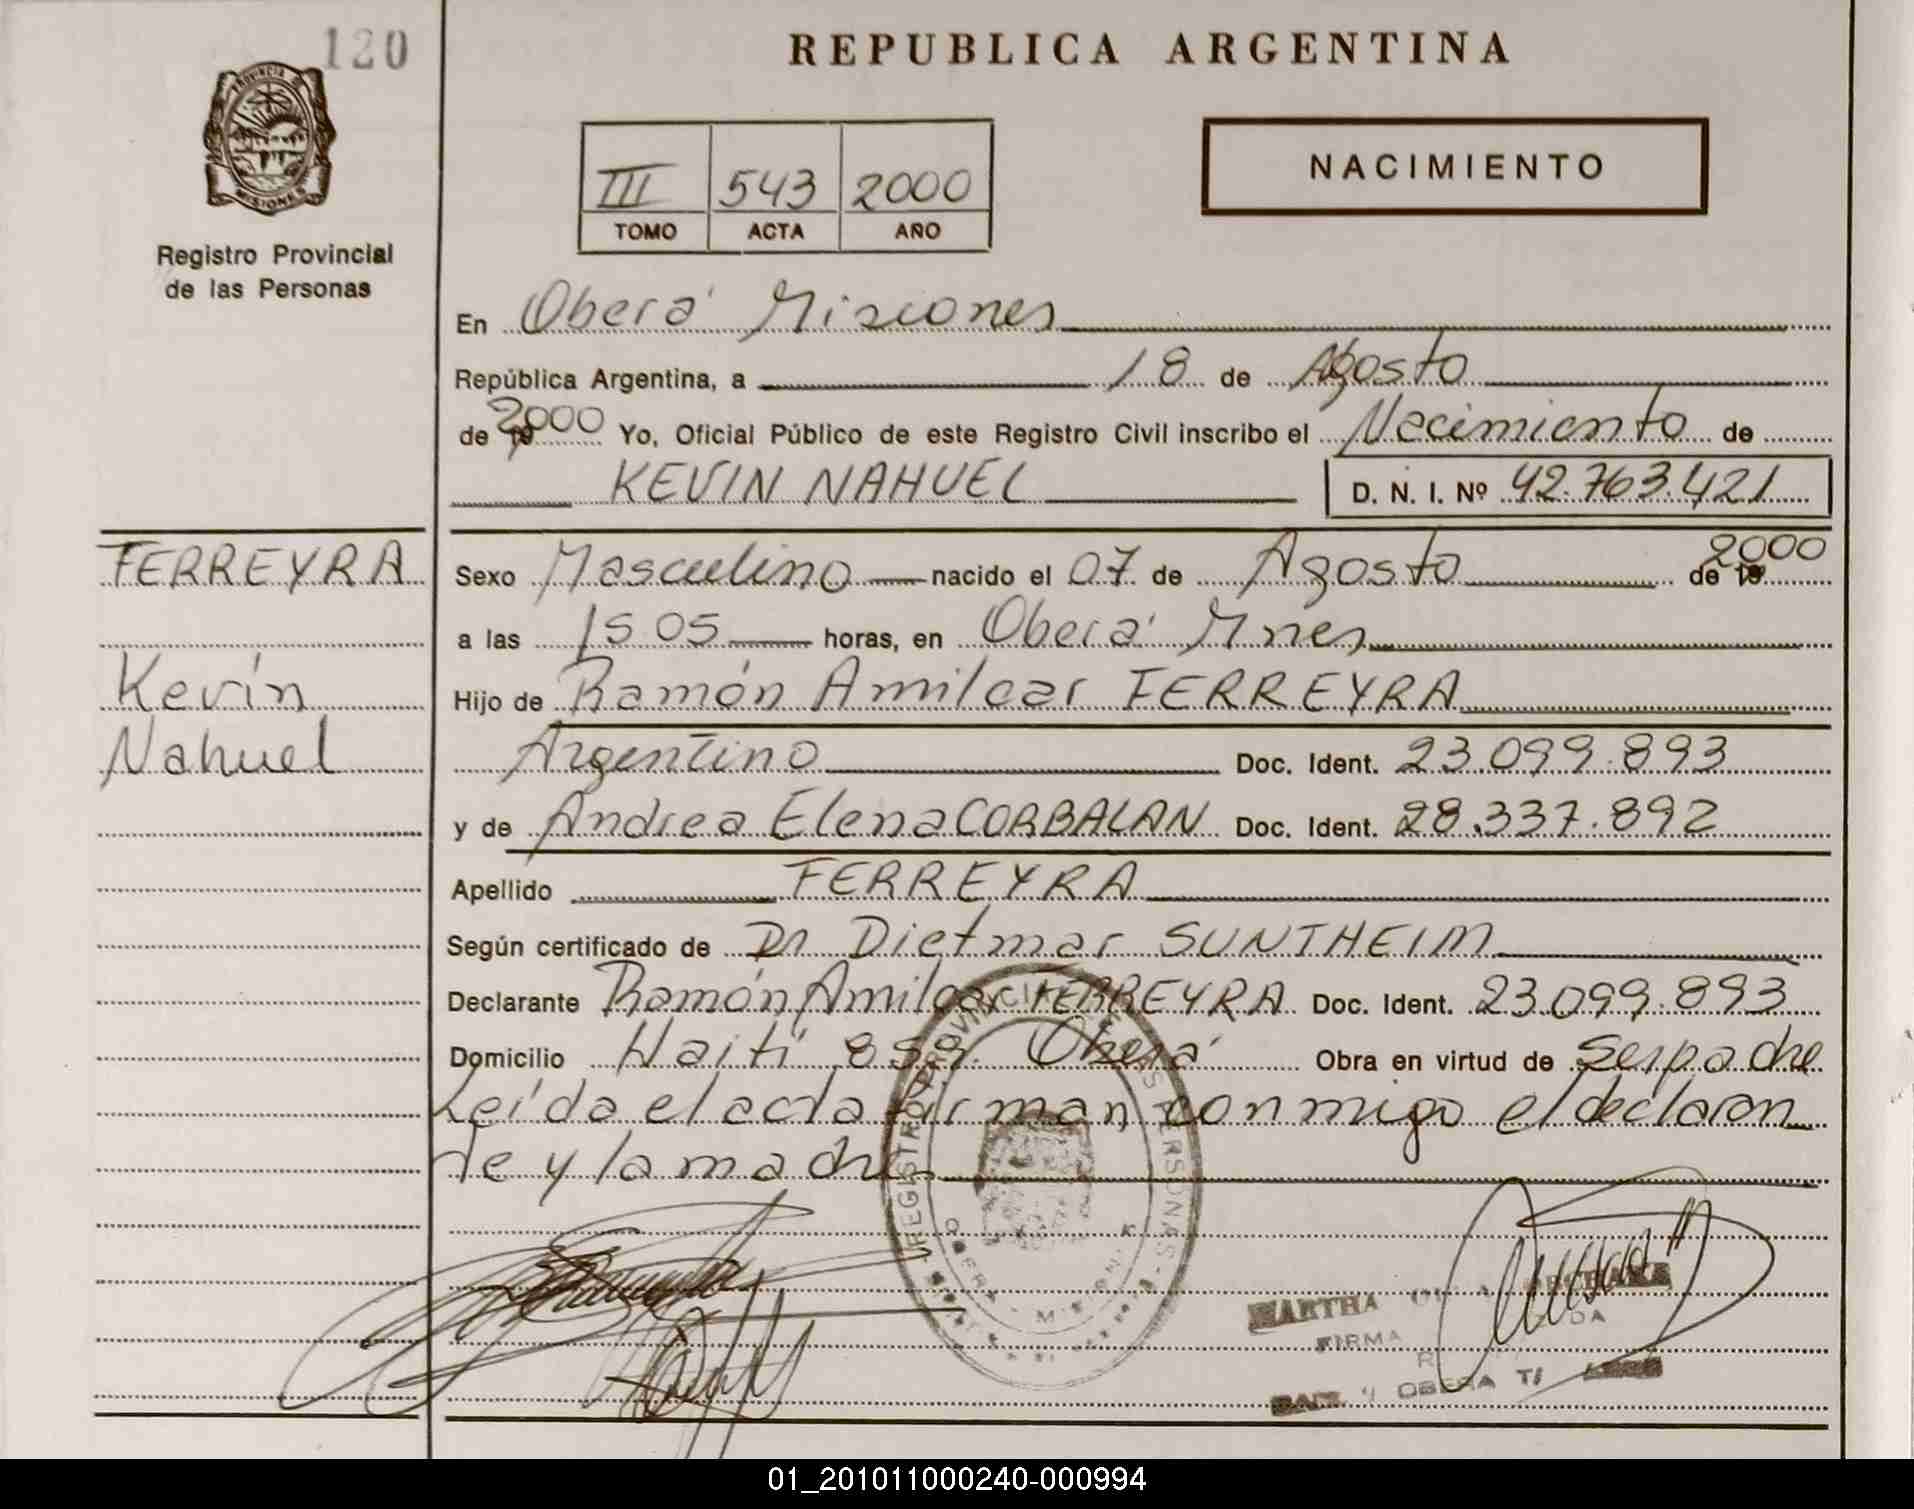 120
REPUBLICA ARGENTINA
PROVINCIA DE
MISIONES
Registro Provincial
de las Personas
III 543 2000
TOMO ACTA AÑO
NACIMIENTO
En Oberá Misiones
República Argentina, a 18 de Agosto
de 2000 Yo, Oficial Público de este Registro Civil inscribo el Nacimiento de
KEVIN NAHUEL D. N. I. Nº 42.763.421
FERREYRA
Kevin
Nahuel
Sexo Masculino nacido el 07 de Agosto de 2000
a las 15 05 horas, en Oberá Mnes
Hijo de Ramón Amilcar FERREYRA
Argentino Doc. Ident. 23.099.893
y de Andrea Elena CORBALAN Doc. Ident. 28.337.892
Apellido FERREYRA
Según certificado de Dr Dietmar SUNTHEIM
Declarante Ramón Amilcar FERREYRA Doc. Ident. 23.099.893
Domicilio Haití 859 Oberá Obra en virtud de ser padre
Leída el acta firman conmigo el declaran
te y la madre
REGISTRO PROVINCIAL DE LAS PERSONAS
OBERA - MISIONES
MARTHA
FIRMA
OBERA
01_201011000240-000994